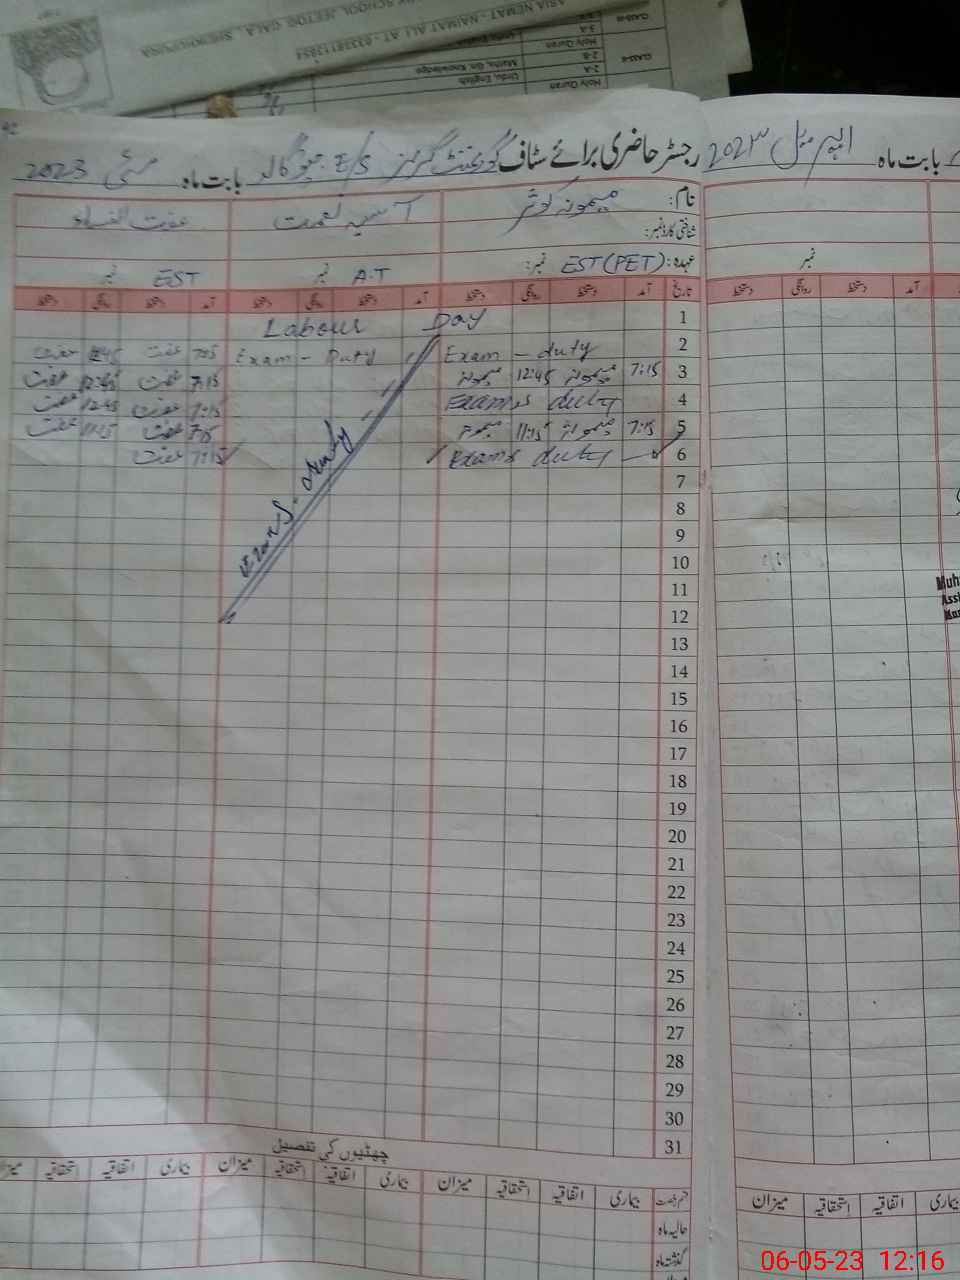 SCHOOL JEETOO GALA, SHEIKHUPURA
ASIA NEMAT - NAIMAT ALI AT - 03338113954
CLASS-II
3-A
Holy Quran
2-B
Maths, Gn. Knowledge
2-A
Urdu, English
CLASS-II
Holy Quran
42
رجسٹر حاضری برائے سٹاف گورنمنٹ گرلز E/S جیتو گالہ بابت ماہ مئی 2023
بابت ماہ اپریل 2023
نام: میمونہ کوثر آسیہ نعمت عفت النساء
شناختی کارڈ نمبر:
عہدہ: EST (PET) نمبر: A.T نمبر EST نمبر
نمبر
تاریخ آمد دستخط روانگی دستخط آمد دستخط روانگی دستخط آمد دستخط روانگی دستخط
آمد دستخط روانگی دستخط
1 Labour Day
2 Exam - duty Exam - Duty 7:05 عفت 12:45 عفت
3 7:15 میمونہ 12:45 میمونہ 7:15 عفت 12:45 عفت
4 Exams duty 7:15 عفت 12:45 عفت
5 7:15 میمونہ 11:15 میمونہ 7:15 عفت 11:15 عفت
6 Exams duty 7:15 عفت
Exams. duty
7
8
9
10
11
12
13
14
15
16
17
18
19
20
21
22
23
24
25
26
27
28
29
30
31
Muh
Assi
چھٹیوں کی تفصیل
قسم رخصت بیماری اتفاقیہ استحقاقیہ میزان بیماری اتفاقیہ استحقاقیہ میزان بیماری اتفاقیہ استحقاقیہ میزان
بیماری اتفاقیہ استحقاقیہ میزان
حالیہ ماہ
گذشتہ ماہ
06-05-23 12:16